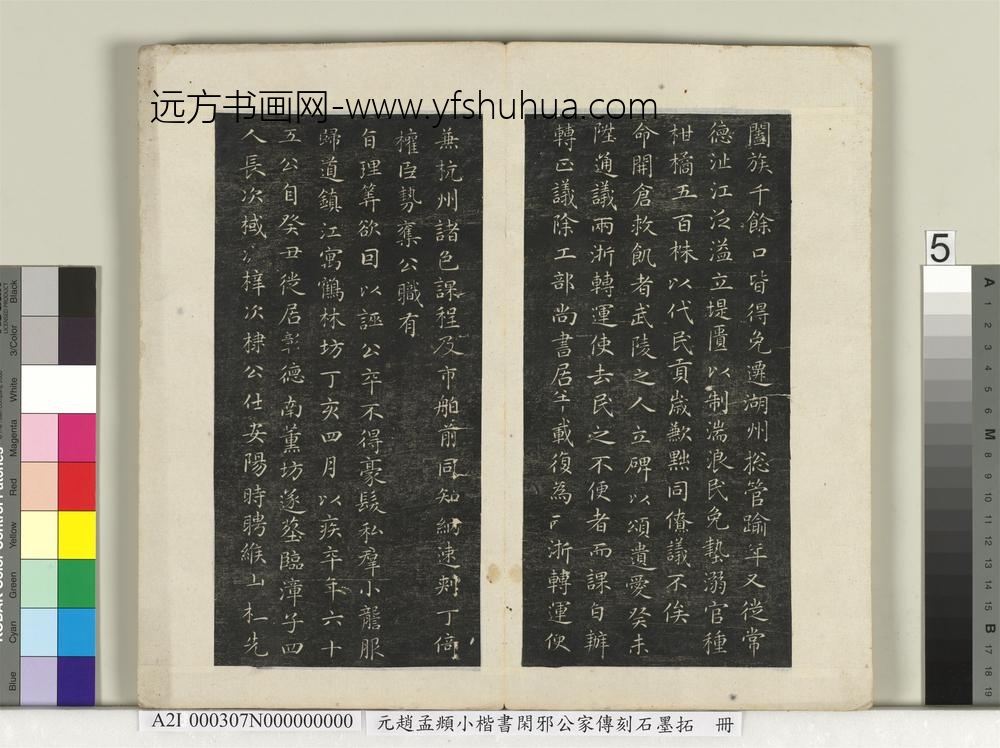 远方书画网-www.yfshuhua.com
闔族千餘口皆得免遷湖州総管踰年又徙常
德沚江泛溢立堤匽以制湍浪民免墊溺官種
柑橘五百株以代民貢歲歉黜同僚議不俟
命開倉救飢者武陵之人立碑以頌遺愛癸未
陞通議兩浙轉運使去民之不便者而課自辦
轉正議除工部尚書居半載復為兩浙轉運使
兼杭州諸色課程及市舶前同知納速剌丁倍
權臣勢奪公職有
旨理筭欲因以誣公卒不得豪髮私羣小龍服
歸道鎮江寓鶴林坊丁亥四月以疾卒年六十
五公自癸丑徙居彰德南薰坊遂塟臨漳子四
人長次棫次梓次棣公仕安陽時聘緱山杜先
5
A
1
2
3
4
5
6
M
8
9
10
11
12
13
14
15
B
17
18
19
Black
3/Color
White
Magenta
Red
Yellow
Green
Cyan
Blue
A2I 000307N000000000
元趙孟頫小楷書閑邪公家傳刻石墨拓 冊